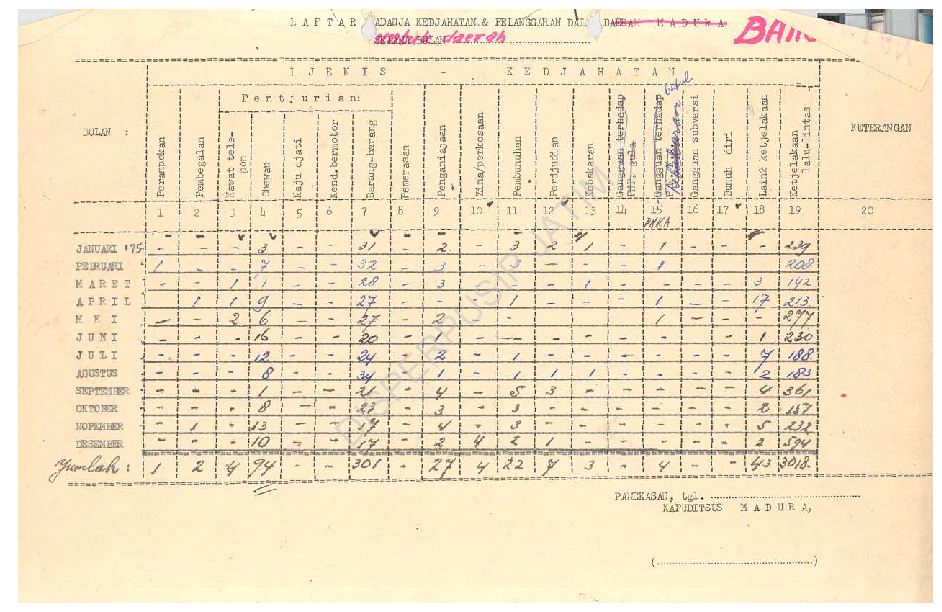 DAFTAR ADANJA KEDJAHATAN & PELANGGARAN DALAM DAERAH MADURA
daerah
DJENIS - KEDJAHATAN
Pertjurian:
BULAN :
Perampokan
Pembegalan
Kawat tele-pon
Hewan
Kaju djati
Kend.bermotor
Barang-barang
Pemerasan
Penganiajaan
Zina/perkosaan
Pembunuhan
Perdjudian
Kebakaran
Gangguan terhadap
Gangguan terhadap
Gangguan subversi
Bunuh diri
Lain2 Ketjelakaan
Ketjelakaan lalu-lintas
KETERANGAN
1 2 3 4 5 6 7 8 9 10 11 12 13 14 15 16 17 18 19 20
PJKA
JANUARI '75 - - - 3 - - 31 - 2 - 3 2 1 - 1 - - - 239
PEBRUARI 1 - - 7 - - 32 - 3 - 3 - - 1 208
MARET - - 1 1 - - 28 - 3 - - - 1 - - - - 3 142
APRIL - 1 1 9 - - 27 - - - 1 - - - 1 - - 17 213
MEI - - 2 6 - - 27 - 2 - - - - - 1 - - - 277
JUNI - - - 16 - - 20 - - - - - - - - - - 1 230
JULI - - - 12 - - 24 - 2 - 1 - - - - - - 7 188
AGUSTUS - - - 8 - - 34 - 1 - 1 1 1 - - - - 2 183
SEPTEMBER - - - 1 - - 21 - 4 - 5 3 - - - - - 4 361
OKTOBER - - - 8 - - 23 - 3 - 3 - - - - - - 2 157
NOPEMBER - 1 - 13 - - 17 - 4 - 3 - - - - - - 5 232
DESEMBER - - - 10 - - 17 - 2 4 2 1 - - - - - 2 594
Jumlah : 1 2 4 94 - - 301 - 27 4 22 7 3 - 4 - - 43 3018.
PAMEKASAN, tgl. ..............................
KAPUDITSUS MADURA,
(..............................)
DISPERPUSIP JATIM